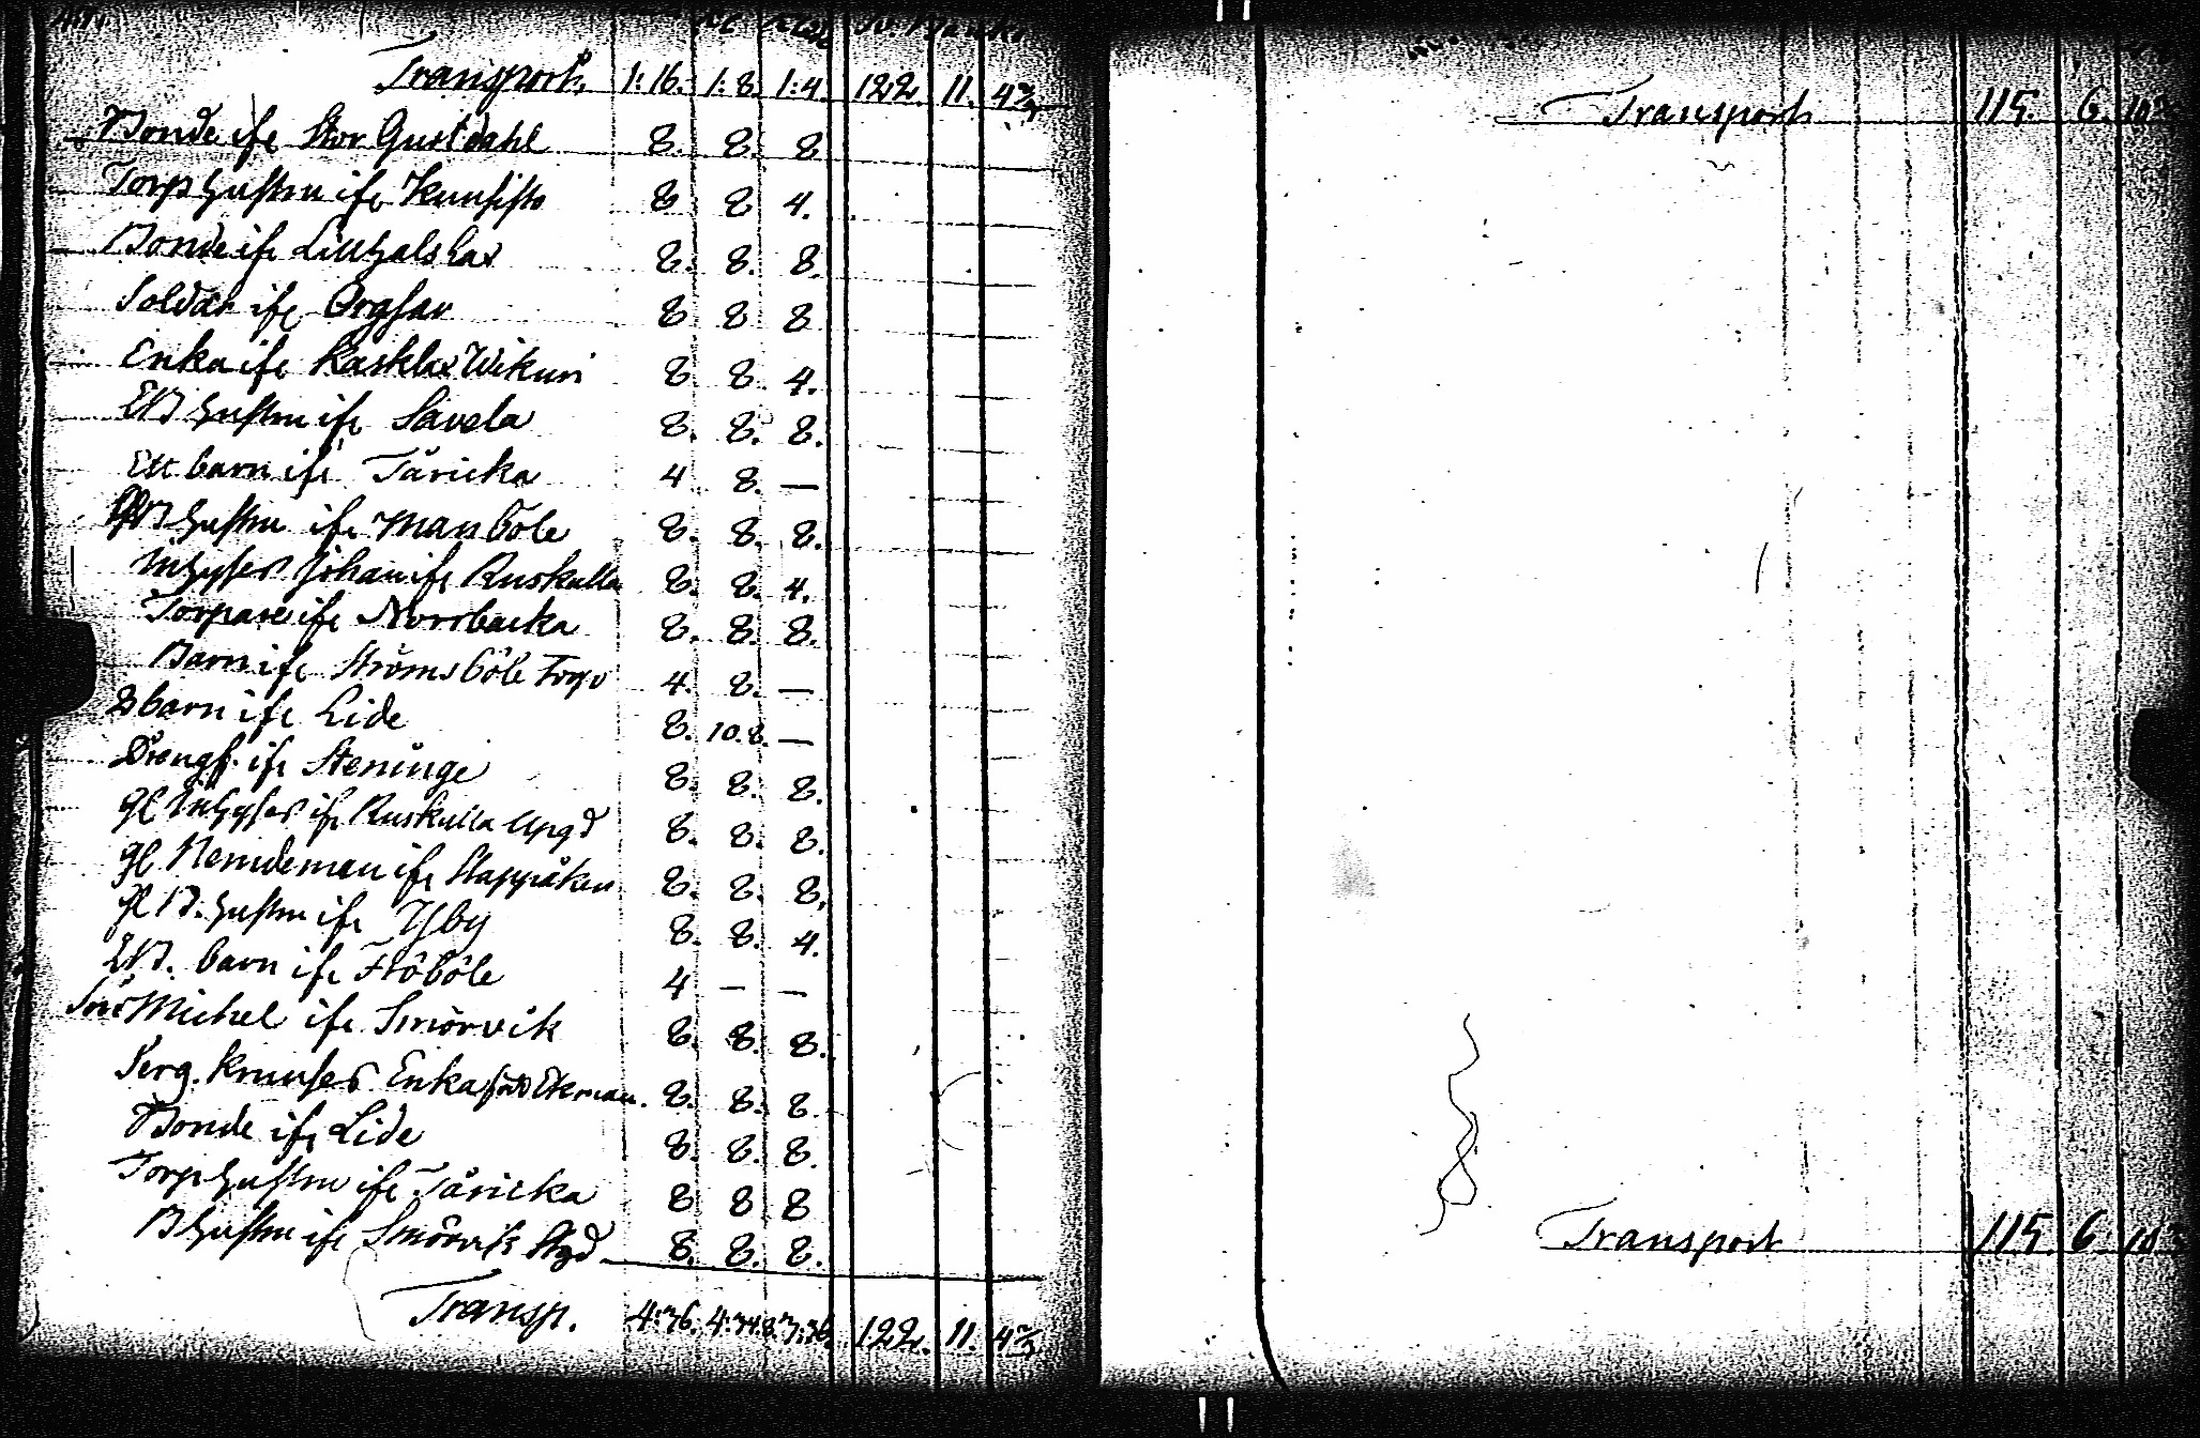 Transport 1:16. 1:8. 1:4. 122. 11. 4 2/3
Bonde ifr Stor Gustdahl 8. 8. 8
Torp hustru ifr Kunsisto 8 8 4.
Bonde ifr Lillhalslax 8. 8. 8.
Soldat ifr 8 8 8
Enka ifr Rasklax Wikuri 8 8. 4.
hustru ifr Savela 8. 8. 8.
Ett barn ifr Täricka 4 8. —
hustru ifr Mansböle 8. 8. 8.
Inhyses Johan ifr Ruskulla 8. 8. 4.
Torpare ifr Norrbacka 8. 8. 8.
Barn ifr Strömsböle Torp 4. 8. —
barn ifr Lide 8. 10.8. —
Drengs. ifr Steninge 8. 8. 8.
gl Inhyses ifr Ruskulla Upgd 8. 8. 8.
gl Nemdeman ifr Stappåken 8. 8. 8.
gl B. hustru ifr Ysby 8. 8. 4.
barn ifr Fröböle 4 — —
Michel ifr Smörvik 8. 8. 8.
Serg. Enka Ekman. 8. 8. 8.
Bonde ifr Lide 8. 8. 8.
Torp hustru ifr Täricka 8 8 8
B hustru ifr Smörvik 8. 8. 8.
Transp. 4:36. 4:34.8. 3:36. 122. 11. 4 2/3
Transport 115. 6. 10
Transport 115. 6. 10